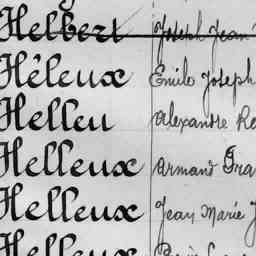 Helbert Joseph Jean
Héleux Emile Joseph
Helleu Alexandre Re
Helleux Armand Fra
Helleux Jean Marie J
Helleux